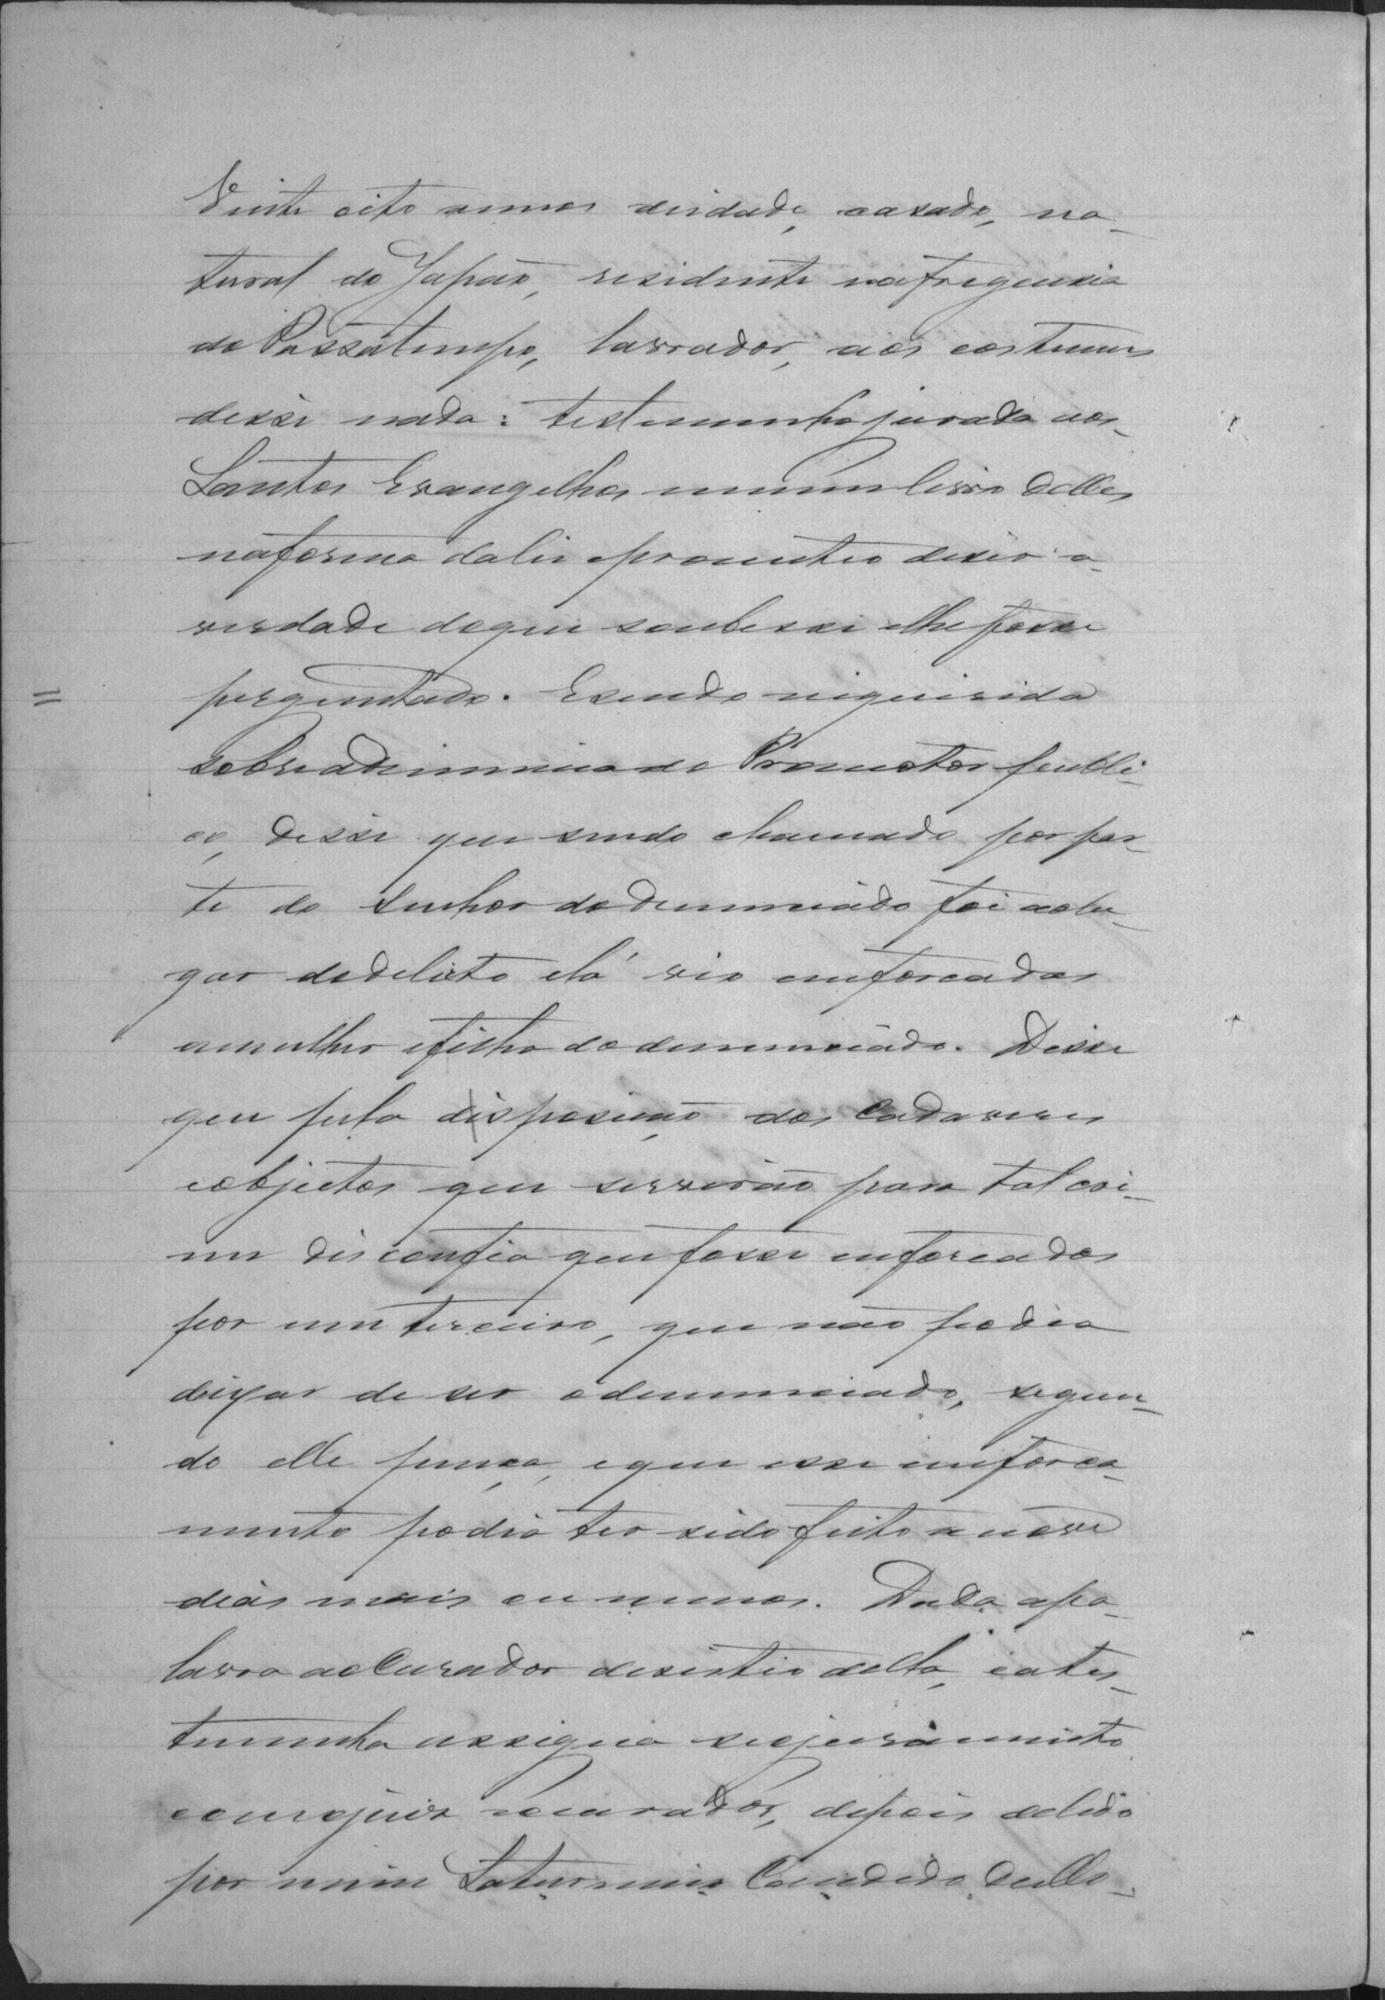 Vinte oito annos deidade, casado, na-
tural do Japão, residente nafreguesia
do Passatempo, lavrador, aos costumes
desse nada: testemunha jurada aos
Santos Evangelhos em um livro delles
naforma dalei eprometteo diser a
verdade doque soubesse elhe fosse
perguntado. Esendo inquirida
sobre adenuncia do Promotor publi-
co, disse que sendo chamado por par-
te do senhor dodenunciado foi aolu-
gar dodelicto elá vio emforcados
amulher efilho dodenunciado. Disse
que pela disposição dos cadaveres
eobjectos que servirão para tal cri-
me desconfia que fosse emforcados
por um terceiro, que não podia
deixar de ser odenunciado, segun-
do elle pença, eque esse emforca-
mento podia ter sido feito a nove
dias mais ou menos. Dada apa-
lavra aoCurador desistio della, eates-
temunha assigna seojuramento
com ojuiz ecurador, depois delido
por mim Saturnino Candido